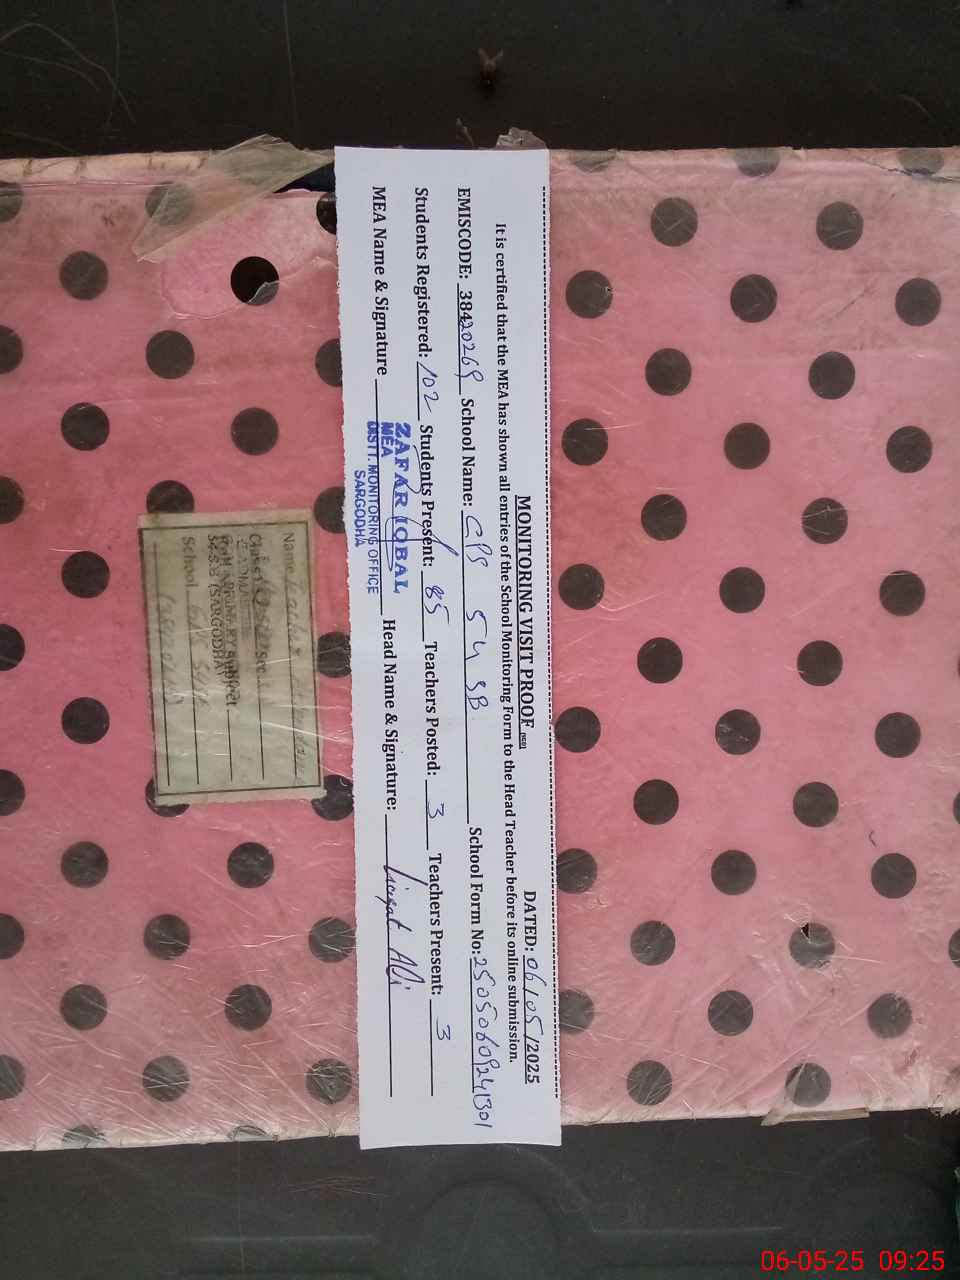 MONITORING VISIT PROOF (SED) DATED: 06/05/2025
It is certified that the MEA has shown all entries of the School Monitoring Form to the Head Teacher before its online submission.
EMISCODE: 38420269 School Name: GPS 54 SB School Form No: 25050609241301
Students Registered: 102 Students Present: 85 Teachers Posted: 3 Teachers Present: 3
MEA Name & Signature Head Name & Signature: Liaqat Ali
ZAFAR IQBAL
MEA
DISTT. MONITORING OFFICE
SARGODHA
Name
Class Sec
Roll Subject
PRIMARY
54.S.B (SARGODHA)
School
06-05-25 09:25